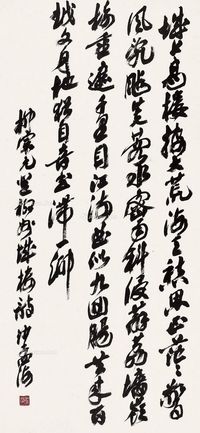 城上高樓接大荒海天愁思正茫茫驚
風亂颭芙蓉水密雨斜侵薜荔墻嶺
樹重遮千里目江流曲似九回腸共来百
越文身地猶自音書滯一鄉
柳宗元登柳州城樓詩 沙孟海